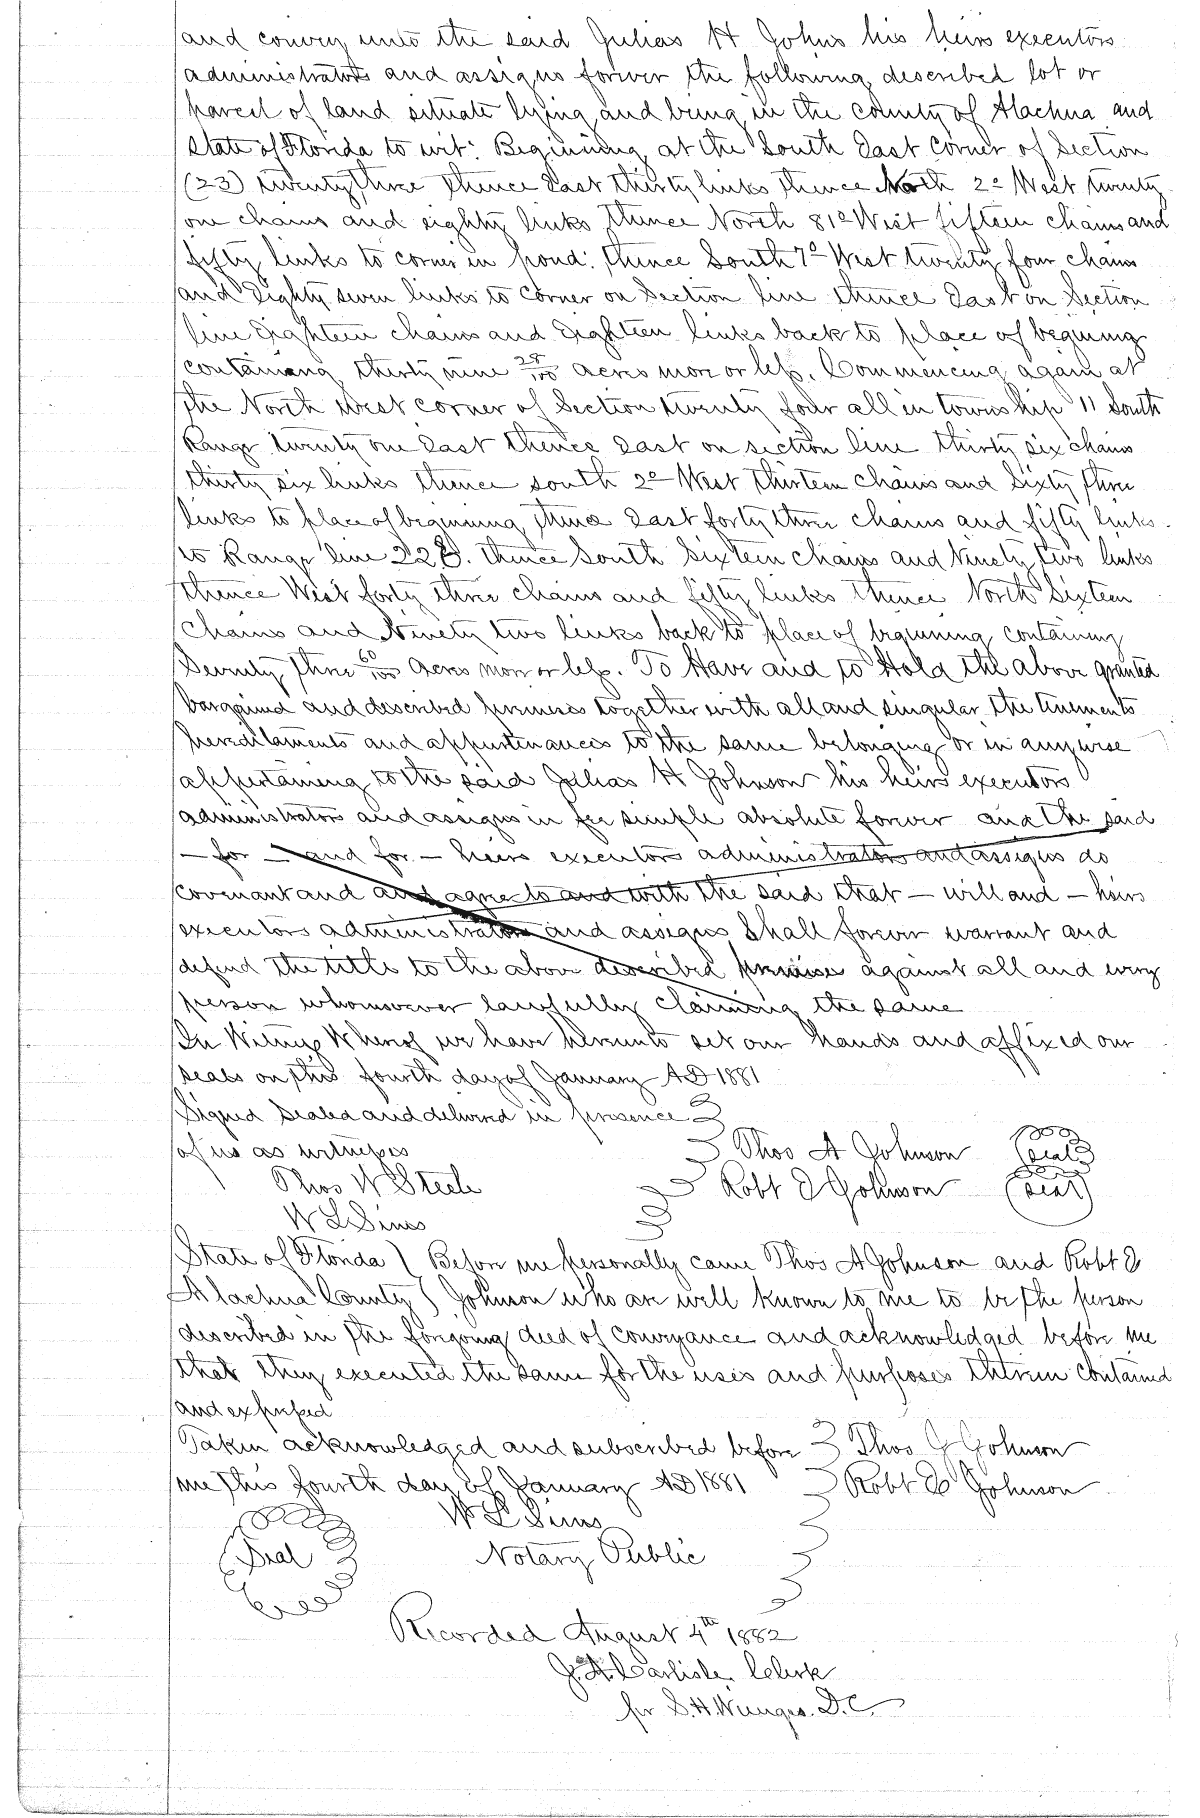 and convey unto the said Julias H Johns his heirs executors
administrators and assigns forever the following described lot or
parcel of land situate lying and being in the county of Alachua and
State of Florida to wit: Beginning at the South East Corner of Section
(23) twenty three thence East thirty links thence North 2° West twenty
one chains and eighty links, thence North 81° West fifteen chains and
fifty links to corner in pond: thence South 7° West twenty four chains
and Eighty seven links to corner on Section line thence East on Section
line Eighteen chains and Eighteen links back to place of begining
containing thirty nine 28/100 acres more or less. Commencing again at
the North West corner of Section twenty four all in township 11 South
Range twenty one East thence East on section line thirty six chains
thirty six links thence south 2° West thirteen chains and sixty three
links to place of beginning thence East forty three chains and fifty links
to Range line 22E. thence South sixteen chains and Ninety two links
thence West forty three chains and fifty links thence North sixteen
chains and Ninety two links back to place of begining containing
Seventy three 60/100 acres more or less. To Have and to Hold the above granted
bargained and described premises together with all and singular the tenements
hereditaments and appurtenances to the same belonging or in anywise
appertaining to the said Julias H Johnson his heirs executors
administrators and assigns in fee simple absolute forever and the said
– for – and for – heirs executors administrators and assigns do
covenant and and agree to and with the said that – will and – heirs
executors administrators and assigns shall forever warrant and
defend the title to the above described premises against all and every
person whomsoever lawfully claiming the same
In Witness Whereof we have hereunto set our hands and affixed our
seals on this fourth day of January AD 1881
Signed sealed and delivered in presence
of us as witnesses Thos A Johnson (Seal)
Thos W Steele Robt E Johnson (Seal)
W L Sims
State of Florida ) Before me personally came Thos A Johnson and Robt E
Alachua County ) Johnson who are well known to me to be the person
described in the forgoing deed of conveyance and acknowledged before me
that they executed the same for the uses and purposes therein contained
and expressed
Taken acknowledged and subscribed before Thos J Johnson
me this fourth day of January AD 1881 Robt E Johnson
W L Sims
(Seal) Notary Public
Recorded August 4th 1882
J. A. Carlisle. Clerk
for S. H. D. C.